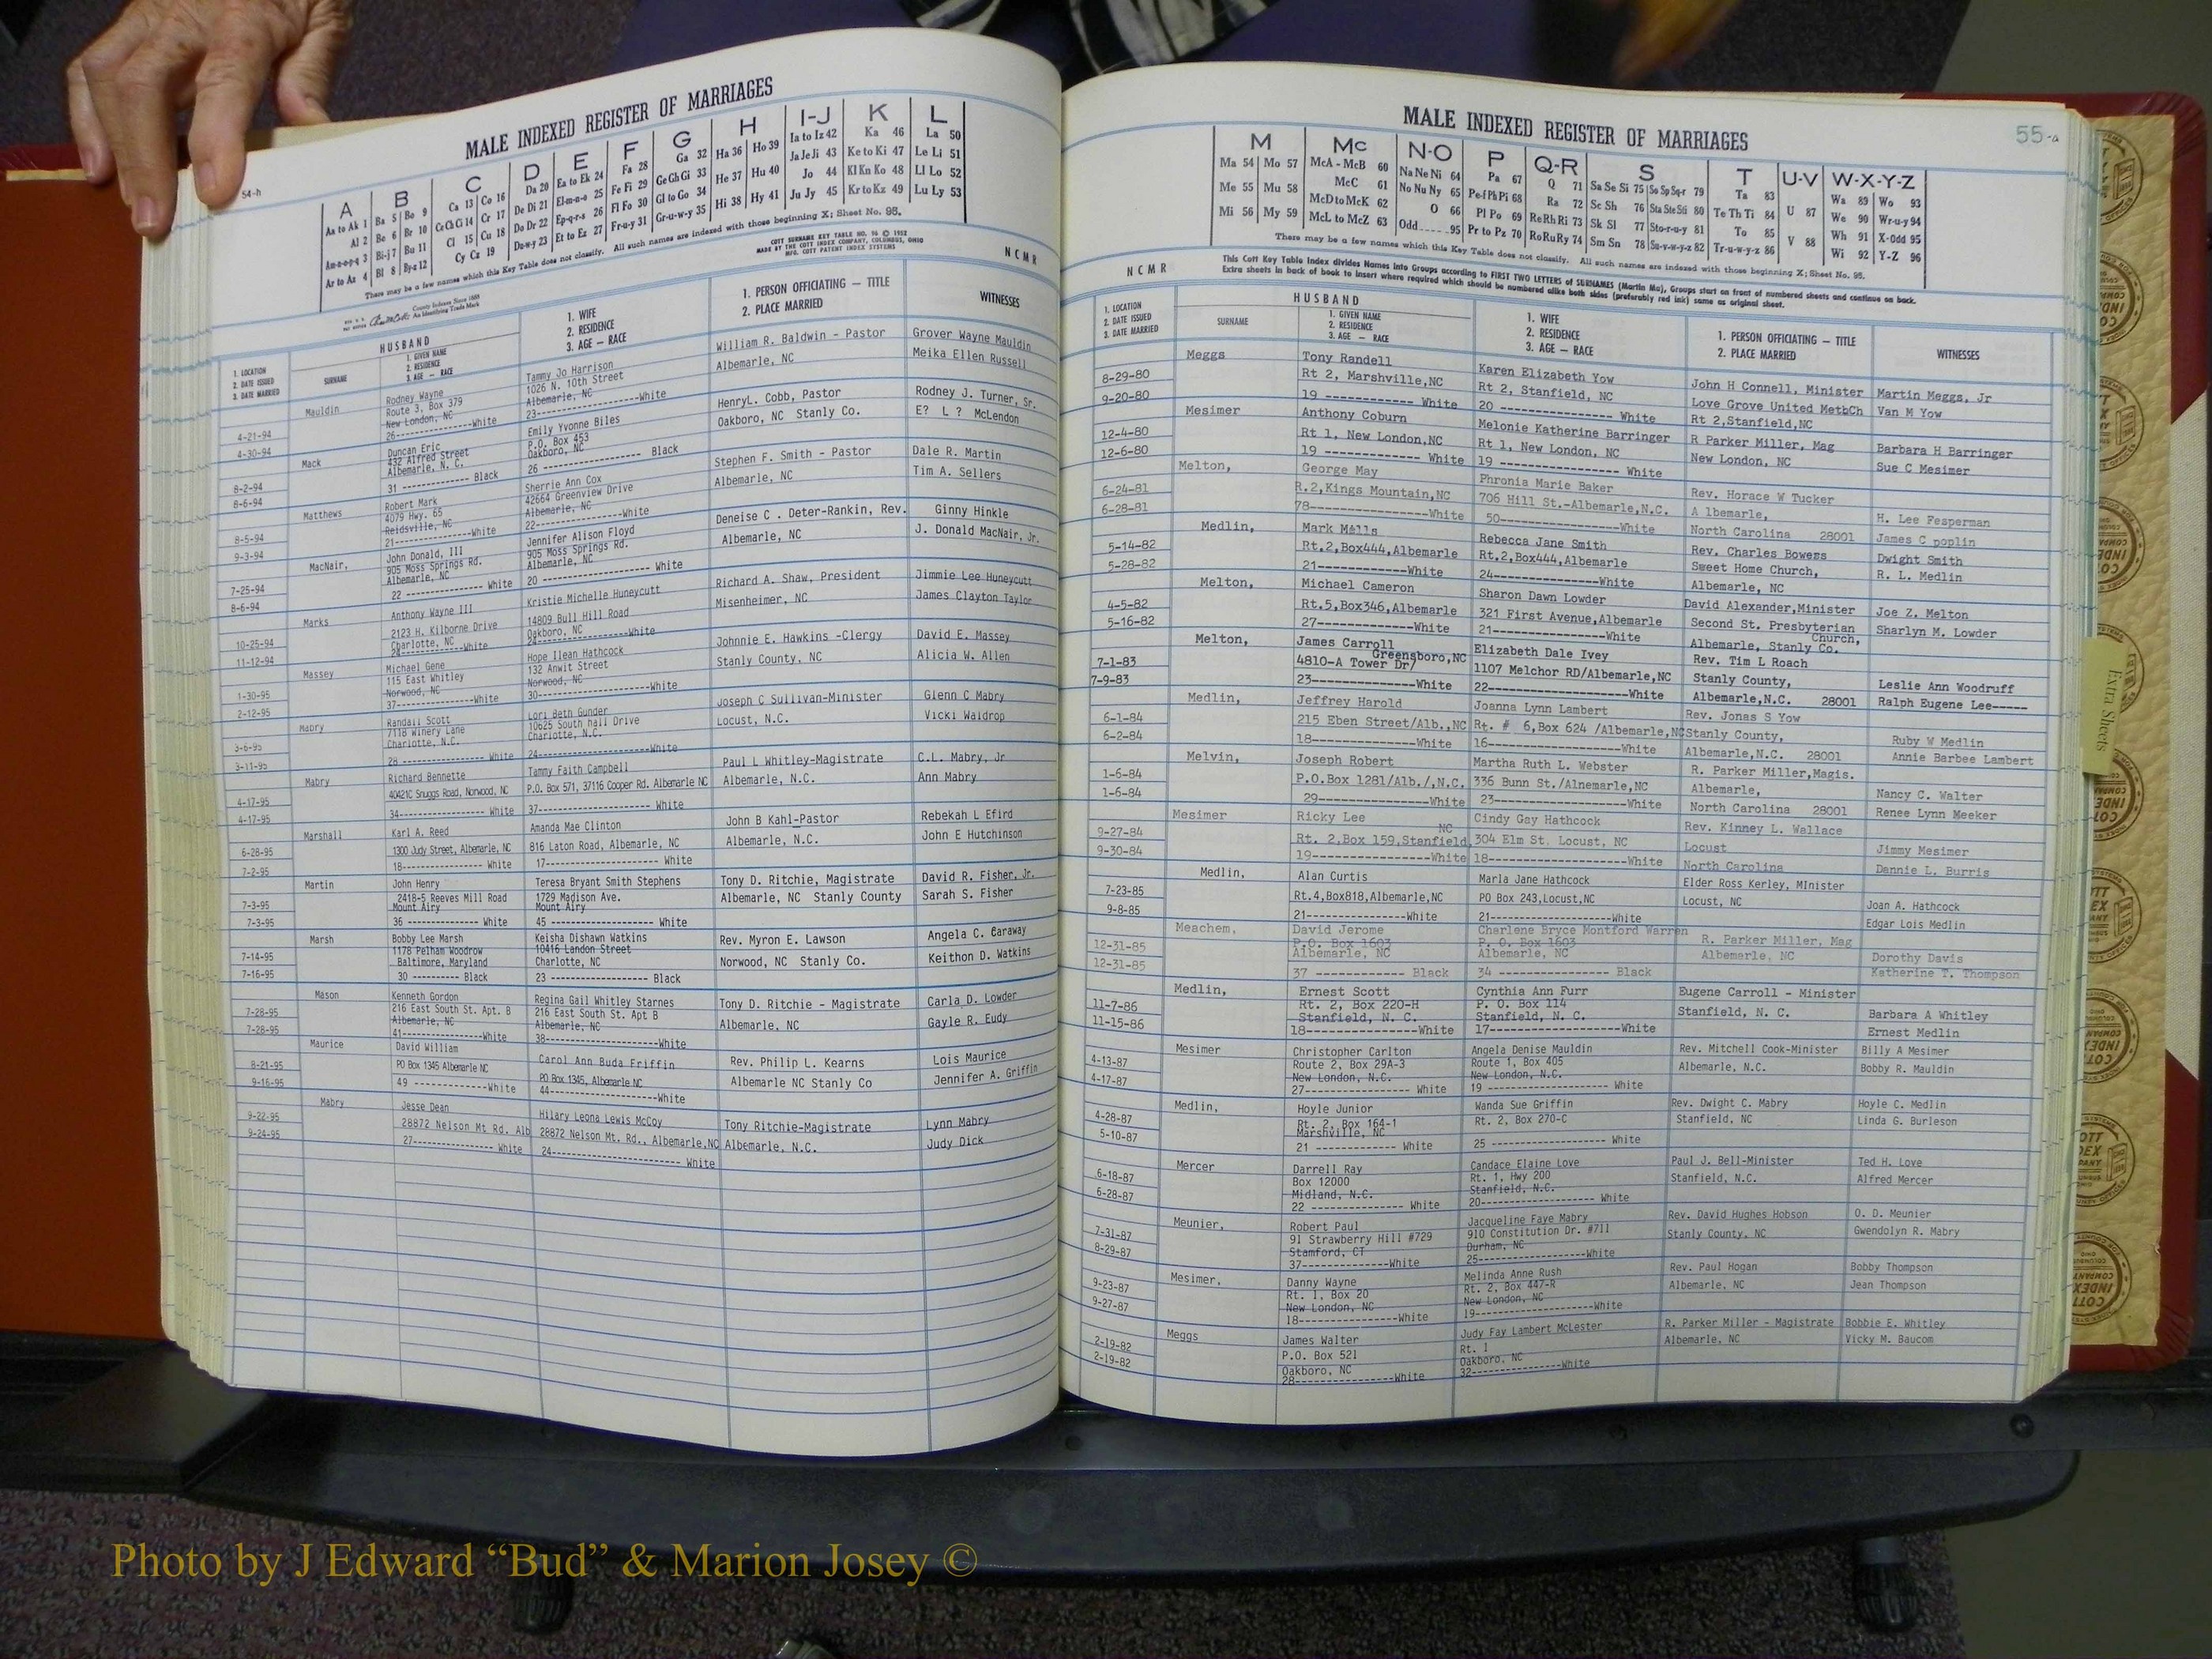 54-h
MALE INDEXED REGISTER OF MARRIAGES
A B C D E F G H I-J K L
Aa to Ak 1 Ba 5 Bo 9 Ca 13 Co 16 Da 20 Ea to Ek 24 Fa 28 Ga 32 Ha 36 Ho 39 Ia to Iz 42 Ka 46 La 50
Al 2 Be 6 Br 10 Ce Ch Ci 14 Cr 17 De Di 21 El-m-n-o 25 Fe Fi 29 Ge Gh Gi 33 He 37 Hu 40 Ja Je Ji 43 Ke to Ki 47 Le Li 51
Am-n-o-p-q 3 Bi-j 7 Bu 11 Cl 15 Cu 18 Do Dr 22 Ep-q-r-s 26 Fl Fo 30 Gl to Go 34 Hi 38 Hy 41 Jo 44 Kl Kn Ko 48 Ll Lo 52
Ar to Az 4 Bl 8 By-z 12 Cy Cz 19 Du-w-y 23 Et to Ez 27 Fr-u-y 31 Gr-u-w-y 35 Ju Jy 45 Kr to Kz 49 Lu Ly 53
There may be a few names which this Key Table does not classify. All such names are indexed with those beginning X; Sheet No. 95.
COTT SURNAME KEY TABLE NO. 96 © 1952
MADE BY THE COTT INDEX COMPANY, COLUMBUS, OHIO
MFG. COTT PATENT INDEX SYSTEMS
County Indexes Since 1888
An Identifying Trade Mark
N C M R
1. LOCATION
2. DATE ISSUED
3. DATE MARRIED
HUSBAND
SURNAME
1. GIVEN NAME
2. RESIDENCE
3. AGE — RACE
1. WIFE
2. RESIDENCE
3. AGE — RACE
1. PERSON OFFICIATING — TITLE
2. PLACE MARRIED
WITNESSES
Mauldin Rodney Wayne Tammy Jo Harrison William R. Baldwin - Pastor Grover Wayne Mauldin
Route 3, Box 379 1026 N. 10th Street Albemarle, NC Meika Ellen Russell
4-21-94 New London, NC Albemarle, NC
4-30-94 26--------------White 23--------------White
Mack Duncan Eric Emily Yvonne Biles HenryL. Cobb, Pastor Rodney J. Turner, Sr.
432 Alfred Street P.O. Box 453 Oakboro, NC Stanly Co. E? L ? McLendon
8-2-94 Albemarle, N. C. Oakboro, NC
8-6-94 31 ------------- Black 26 ------------------- Black
Matthews Robert Mark Sherrie Ann Cox Stephen F. Smith - Pastor Dale R. Martin
4079 Hwy. 65 42664 Greenview Drive Albemarle, NC Tim A. Sellers
8-5-94 Reidsville, NC Albemarle, NC
9-3-94 21--------------White 22--------------White
MacNair, John Donald, III Jennifer Alison Floyd Deneise C . Deter-Rankin, Rev. Ginny Hinkle
905 Moss Springs Rd. 905 Moss Springs Rd. Albemarle, NC J. Donald MacNair, Jr.
7-25-94 Albemarle, NC Albemarle, NC
8-6-94 22 -------------- White 20 ------------------- White
Marks Anthony Wayne III Kristie Michelle Huneycutt Richard A. Shaw, President Jimmie Lee Huneycutt
2123 H. Kilborne Drive 14809 Bull Hill Road Misenheimer, NC James Clayton Taylor
10-25-94 Charlotte, NC Oakboro, NC
11-12-94 24--------------White 24--------------White
Massey Michael Gene Hope Ilean Hathcock Johnnie E. Hawkins -Clergy David E. Massey
115 East Whitley 132 Anwit Street Stanly County, NC Alicia W. Allen
1-30-95 Norwood, NC Norwood, NC
2-12-95 37--------------White 30-------------------White
Mabry Randall Scott Lori Beth Gunder Joseph C Sullivan-Minister Glenn C Mabry
7118 Winery Lane 10625 South hall Drive Locust, N.C. Vicki Waldrop
3-6-95 Charlotte, N.C. Charlotte, N.C.
3-11-95 28 -------------- White 24-------------------White
Mabry Richard Bennette Tammy Faith Campbell Paul L Whitley-Magistrate C.L. Mabry, Jr
4-17-95 40421C Snuggs Road, Norwood, NC P.O. Box 571, 37116 Cooper Rd. Albemarle NC Albemarle, N.C. Ann Mabry
4-17-95 34------------------ White 37------------------ White
Marshall Karl A. Reed Amanda Mae Clinton John B Kahl-Pastor Rebekah L Efird
6-28-95 1300 Judy Street, Albemarle, NC 816 Laton Road, Albemarle, NC Albemarle, N.C. John E Hutchinson
7-2-95 18------------------ White 17------------------ White
Martin John Henry Teresa Bryant Smith Stephens Tony D. Ritchie, Magistrate David R. Fisher, Jr.
7-3-95 2418-5 Reeves Mill Road 1729 Madison Ave. Albemarle, NC Stanly County Sarah S. Fisher
Mount Airy Mount Airy
7-3-95 36 -------------- White 45 ------------------- White
Marsh Bobby Lee Marsh Keisha Dishawn Watkins Rev. Myron E. Lawson Angela C. Caraway
7-14-95 1178 Pelham Woodrow 10416 Landon Street Norwood, NC Stanly Co. Keithon D. Watkins
Baltimore, Maryland Charlotte, NC
7-16-95 30 ---------- Black 23 ------------------ Black
Mason Kenneth Gordon Regina Gail Whitley Starnes Tony D. Ritchie - Magistrate Carla D. Lowder
7-28-95 216 East South St. Apt. B 216 East South St. Apt B Albemarle, NC Gayle R. Eudy
7-28-95 Albemarle, NC Albemarle, NC
41--------------White 38-------------------White
Maurice David William Carol Ann Buda Friffin Rev. Philip L. Kearns Lois Maurice
8-21-95 PO Box 1345 Albemarle NC PO Box 1345, Albemarle NC Albemarle NC Stanly Co Jennifer A. Griffin
9-16-95 49 --------------White 44-------------------White
Mabry Jesse Dean Hilary Leona Lewis McCoy Tony Ritchie-Magistrate Lynn Mabry
9-22-95 28872 Nelson Mt Rd. Alb 28872 Nelson Mt. Rd., Albemarle,NC Albemarle, N.C. Judy Dick
9-24-95 27------------------ White 24----------------------- White
55-a
MALE INDEXED REGISTER OF MARRIAGES
M Mc N-O P Q-R S T U-V W-X-Y-Z
Ma 54 Mo 57 McA - McB 60 Na Ne Ni 64 Pa 67 Q 71 Sa Se Si 75 So Sp Sq-r 79 Ta 83 U 87 Wa 89 Wo 93
Me 55 Mu 58 McC 61 No Nu Ny 65 Pe-f Ph Pi 68 Ra 72 Sc Sh 76 Sta Ste Sti 80 Te Th Ti 84 V 88 We 90 Wr-u-y 94
Mi 56 My 59 McD to McK 62 O 66 Pl Po 69 Re Rh Ri 73 Sk Sl 77 Sto-r-u-y 81 To 85 Wh 91 X-Odd 95
McL to McZ 63 Odd.....95 Pr to Pz 70 Ro Ru Ry 74 Sm Sn 78 Su-v-w-y-z 82 Tr-u-w-y-z 86 Wi 92 Y-Z 96
There may be a few names which this Key Table does not classify. All such names are indexed with those beginning X; Sheet No. 95.
This Cott Key Table Index divides Names into Groups according to FIRST TWO LETTERS of SURNAMES (Martin Ma), Groups start on front of numbered sheets and continue on back.
Extra sheets in back of book to insert where required which should be numbered alike both sides (preferably red ink) same as original sheet.
N C M R
1. LOCATION
2. DATE ISSUED
3. DATE MARRIED
HUSBAND
SURNAME
1. GIVEN NAME
2. RESIDENCE
3. AGE — RACE
1. WIFE
2. RESIDENCE
3. AGE — RACE
1. PERSON OFFICIATING — TITLE
2. PLACE MARRIED
WITNESSES
Meggs Tony Randell Karen Elizabeth Yow John H Connell, Minister Martin Meggs, Jr
8-29-80 Rt 2, Marshville,NC Rt 2, Stanfield, NC Love Grove United MethCh Van M Yow
9-20-80 19 ------------ White 20 ---------------- White Rt 2,Stanfield,NC
Mesimer Anthony Coburn Melonie Katherine Barringer R Parker Miller, Mag Barbara H Barringer
12-4-80 Rt 1, New London,NC Rt 1, New London, NC New London, NC Sue C Mesimer
12-6-80 19 ------------- White 19 ----------------- White
Melton, George May Phronia Marie Baker Rev. Horace W Tucker
6-24-81 R.2,Kings Mountain,NC 706 Hill St.-Albemarle,N.C. A lbemarle, H. Lee Fesperman
6-28-81 78--------------White 50-----------------White North Carolina 28001 James C poplin
Medlin, Mark Mills Rebecca Jane Smith Rev. Charles Bowens Dwight Smith
5-14-82 Rt.2,Box444,Albemarle Rt.2,Box444,Albemarle Sweet Home Church, R. L. Medlin
5-28-82 21--------------White 24-----------------White Albemarle, NC
Melton, Michael Cameron Sharon Dawn Lowder David Alexander,Minister Joe Z. Melton
4-5-82 Rt.5,Box346,Albemarle 321 First Avenue,Albemarle Second St. Presbyterian Sharlyn M. Lowder
Church,
5-16-82 27--------------White 21-----------------White Albemarle, Stanly Co.
Melton, James Carroll Elizabeth Dale Ivey Rev. Tim L Roach
Greensboro,NC
7-1-83 4810-A Tower Dr/ 1107 Melchor RD/Albemarle,NC Stanly County, Leslie Ann Woodruff
7-9-83 23--------------White 22-------------------White Albemarle,N.C. 28001 Ralph Eugene Lee-----
Medlin, Jeffrey Harold Joanna Lynn Lambert Rev. Jonas S Yow
6-1-84 215 Eben Street/Alb.,NC Rt. # 6,Box 624 /Albemarle,NC Stanly County, Ruby W Medlin
6-2-84 18--------------White 16-------------------White Albemarle,N.C. 28001 Annie Barbee Lambert
Melvin, Joseph Robert Martha Ruth L. Webster R. Parker Miller,Magis.
1-6-84 P.O.Box 1281/Alb./,N.C. 336 Bunn St./Alnemarle,NC Albemarle, Nancy C. Walter
1-6-84 29-----------------White 23-------------------White North Carolina 28001 Renee Lynn Meeker
Mesimer Ricky Lee Cindy Gay Hathcock Rev. Kinney L. Wallace
NC
9-27-84 Rt. 2,Box 159,Stanfield, 304 Elm St. Locust, NC Locust Jimmy Mesimer
9-30-84 19-----------------White 18-------------------White North Carolina Dannie L. Burris
Medlin, Alan Curtis Marla Jane Hathcock Elder Ross Kerley, MInister
7-23-85 Rt.4,Box818,Albemarle,NC PO Box 243,Locust,NC Locust, NC Joan A. Hathcock
9-8-85 21--------------White 21-----------------White Edgar Lois Medlin
Meachem, David Jerome Charlene Bryce Montford Warren R. Parker Miller, Mag
12-31-85 P.O. Box 1603 P. O. Box 1603 Albemarle, NC Dorothy Davis
Albemarle, NC Albemarle, NC
12-31-85 37 ------------ Black 34 ---------------- Black Katherine T. Thompson
Medlin, Ernest Scott Cynthia Ann Furr Eugene Carroll - Minister
11-7-86 Rt. 2, Box 220-H P. O. Box 114 Stanfield, N. C. Barbara A Whitley
11-15-86 Stanfield, N. C. Stanfield, N. C. Ernest Medlin
18-----------------White 17-------------------White
Mesimer Christopher Carlton Angela Denise Mauldin Rev. Mitchell Cook-Minister Billy A Mesimer
4-13-87 Route 2, Box 29A-3 Route 1, Box 405 Albemarle, N.C. Bobby R. Mauldin
4-17-87 New London, N.C. New London, N.C.
27---------------- White 19 ----------------- White
Medlin, Hoyle Junior Wanda Sue Griffin Rev. Dwight C. Mabry Hoyle C. Medlin
4-28-87 Rt. 2, Box 164-1 Rt. 2, Box 270-C Stanfield, NC Linda G. Burleson
Marshville, NC
5-10-87 21 -------------- White 25 ------------------- White
Mercer Darrell Ray Candace Elaine Love Paul J. Bell-Minister Ted H. Love
6-18-87 Box 12000 Rt. 1, Hwy 200 Stanfield, N.C. Alfred Mercer
6-28-87 Midland, N.C. Stanfield, N.C.
22 -------------- White 20----------------- White
Meunier, Robert Paul Jacqueline Faye Mabry Rev. David Hughes Hobson O. D. Meunier
7-31-87 91 Strawberry Hill #729 910 Constitution Dr. #711 Stanly County, NC Gwendolyn R. Mabry
8-29-87 Stamford, CT Durham, NC
37--------------White 25-----------------White
Mesimer, Danny Wayne Melinda Anne Rush Rev. Paul Hogan Bobby Thompson
9-23-87 Rt. 1, Box 20 Rt. 2, Box 447-R Albemarle, NC Jean Thompson
9-27-87 New London, NC New London, NC
18--------------White 19-----------------White
Meggs James Walter Judy Fay Lambert McLester R. Parker Miller - Magistrate Bobbie E. Whitley
2-19-82 P.O. Box 521 Rt. 1 Albemarle, NC Vicky M. Baucom
2-19-82 Oakboro, NC Oakboro, NC
28--------------White 32-----------------White
Extra Sheets
Photo by J Edward “Bud” & Marion Josey ©